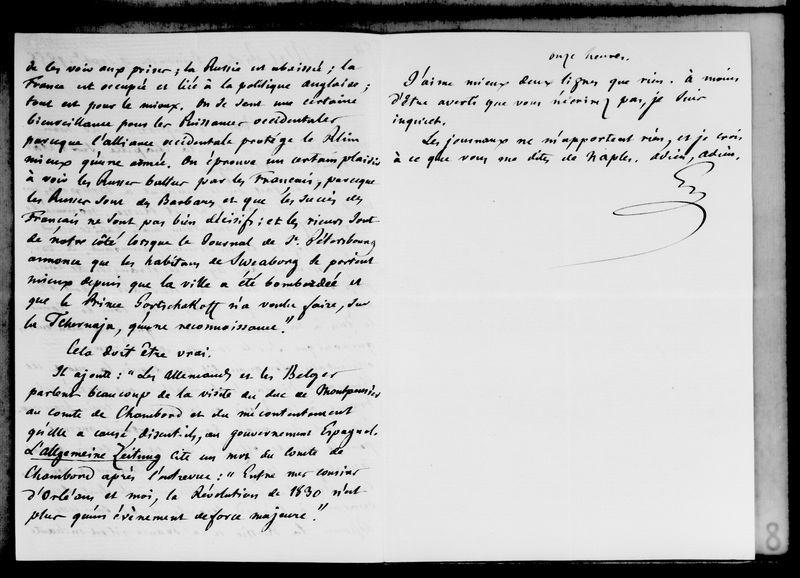 de les voir aux prises ; la Russie est abaissée ; la
France est occupée et liée à la politique anglaise ;
tout est pour le mieux. On se sent une certaine
bienveillance pour les Puissances occidentales
parceque l'alliance occidentale protége le Rhin
mieux qu'une armée. On éprouve un certain plaisir
à voir les Russes battus par les Français, parceque
les Russes sont des Barbares et que les succès des
Français ne sont pas bien décisifs ; et les rieurs sont
de notre côté lorsque le Journal de St. Pétersbourg
annonce que les habitans de Sweaborg se portent
mieux depuis que la ville a été bombardée et
que le Prince Gortschakoff n'a voulu faire, sur
la Tchernaja, qu'une reconnoissance."
Cela doit être vrai.
Il ajoute : "Les Allemands et les Belges
parlent beaucoup de la visite du duc de Montpensier
au comte de Chambord et du mécontentement
qu'elle a causé, disent-ils, au gouvernement Espagnol.
L'allgemeine Zeitung cite un mot du comte de
Chambord après l'entrevue : "Entre mes cousins
d'Orléans et moi, la Révolution de 1830 n'est
plus qu'un évènement de force majeure."
onze heures.
J'aime mieux deux lignes que rien. à moins
d'être averti que vous n'écrirez pas, je suis
inquiet.
Les journaux ne m'apportent rien, et je crois
à ce que vous me dites de Naples. adieu, adieu.
8